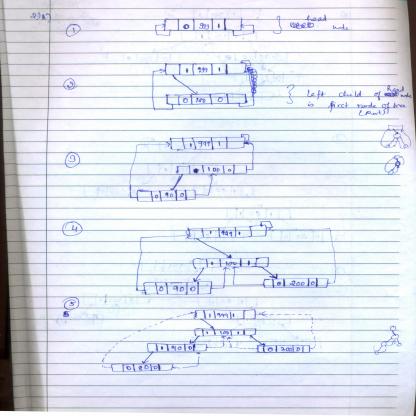 1
0 999 1
Head
node
2
1 999 1
0 100 0
Left child of Head node
is first node of tree
(Root)
3
1 999 1
100 0
0 90 0
4
1 999 1
1 100 1
0 90 0
0 200 0
5
1 999 1
1 100 1
1 90 0
0 200 0
0 80 0